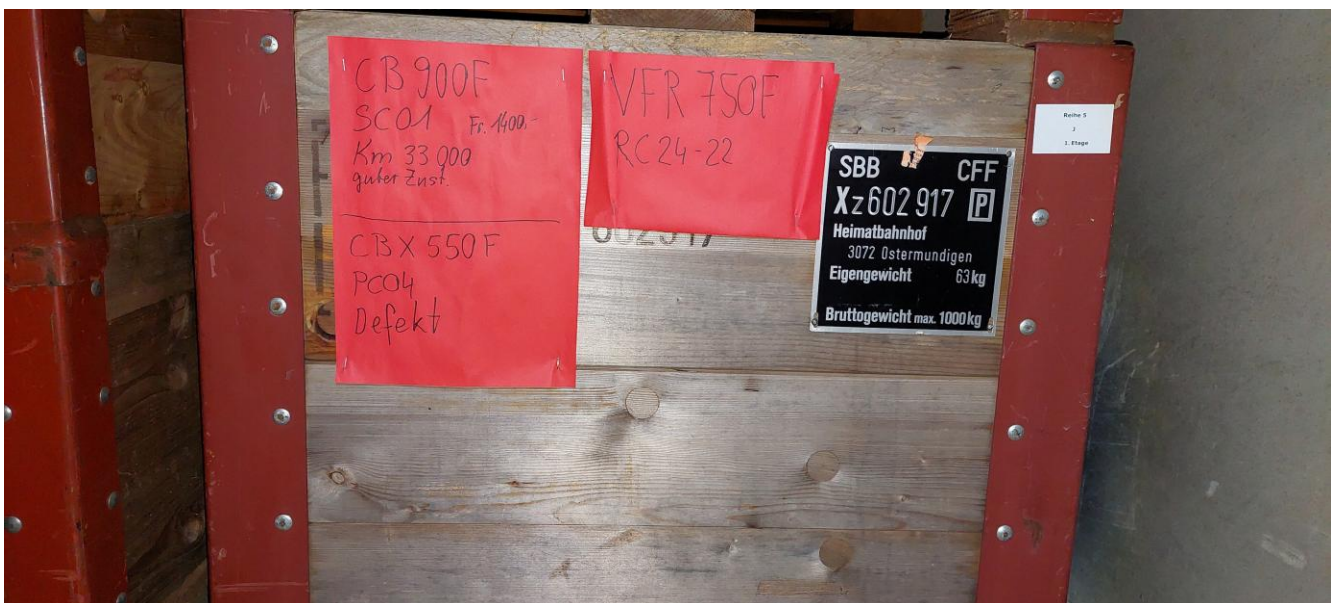 CB 900F
SC01 Fr. 1400.-
Km 33 000
guter Zust.
CBX 550F
PC04
Defekt
VFR 750F
RC 24-22
602917
SBB CFF
Xz 602 917 P
Heimatbahnhof
3072 Ostermundigen
Eigengewicht 63 kg
Bruttogewicht max. 1000 kg
Reihe 5
2
1. Etage